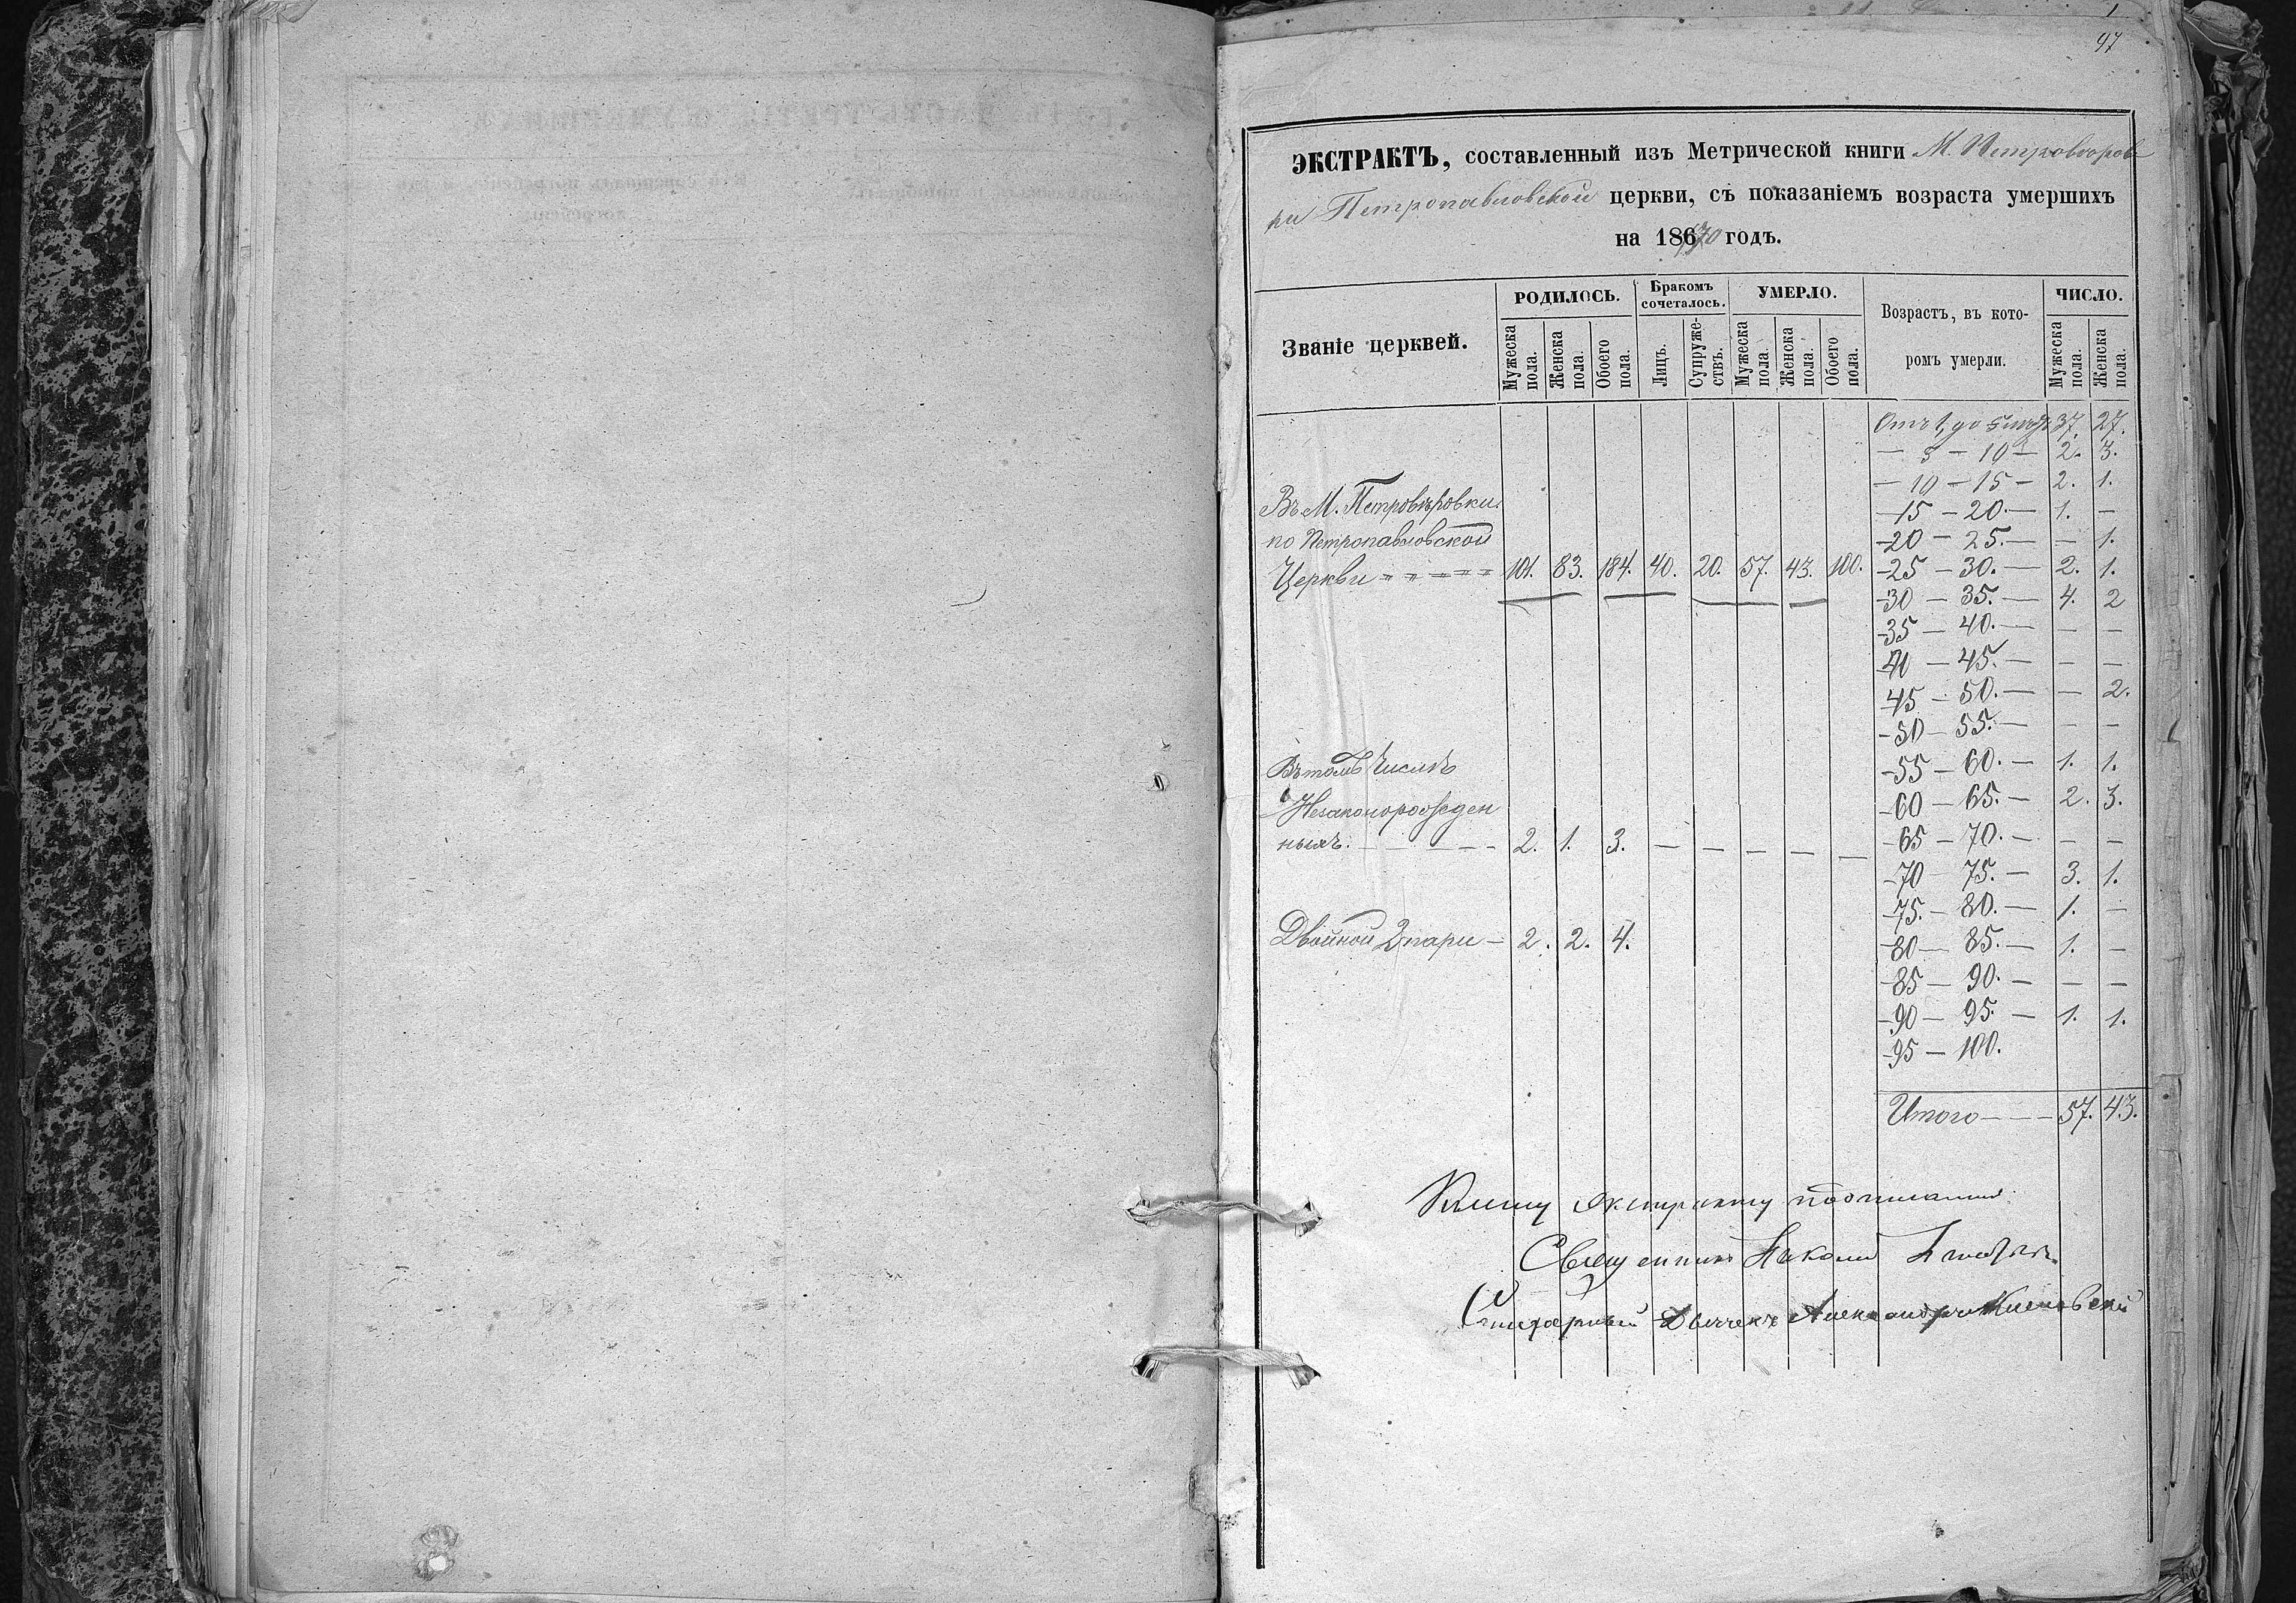 1
97
ЭКСТРАКТЪ, составленный изъ Метрической книги М. Петровѣров
ки Петропавловской церкви, съ показаніемъ возраста умершихъ
на 1870 годъ.
Званіе церквей.
РОДИЛОСЬ.
Мужеска пола.
Женска пола.
Обоего пола.
Бракомъ сочеталось.
Лицъ.
Супружествъ.
УМЕРЛО.
Мужеска пола.
Женска пола.
Обоего пола.
Возрастъ, въ кото-
ромъ умерли.
ЧИСЛО.
Мужеска пола.
Женска пола.
Въ М. Петровѣровки
по Петропавловской
Церкви 101. 83. 184. 40. 20. 57. 43. 100.
Въ томъ числѣ
Незаконорожден
ныхъ. — 2. 1. 3. — — — — —
Двойной 2 пари — 2. 2. 4.
Отъ 1, до 5 лѣтъ 37. 27.
— 5 — 10 — 2. 3.
— 10 — 15 — 2. 1.
— 15 — 20. — 1. —
— 20 — 25. — — 1.
— 25 — 30. — 2. 1.
— 30 — 35. — 4. 2
— 35 — 40. — — —
40 — 45. — — —
45 — 50. — — 2.
— 50 — 55. — — —
— 55 — 60. — 1. 1.
— 60 — 65. — 2. 3.
— 65 — 70. — — —
— 70 — 75. — 3. 1.
— 75. — 80. — 1. —
— 80 — 85. — 1. —
— 85 — 90. — — —
— 90 — 95. — 1. 1.
— 95 — 100.
Итого — 57. 43.
экстракту подписались
Священник Николай
Дьячекъ Александръ